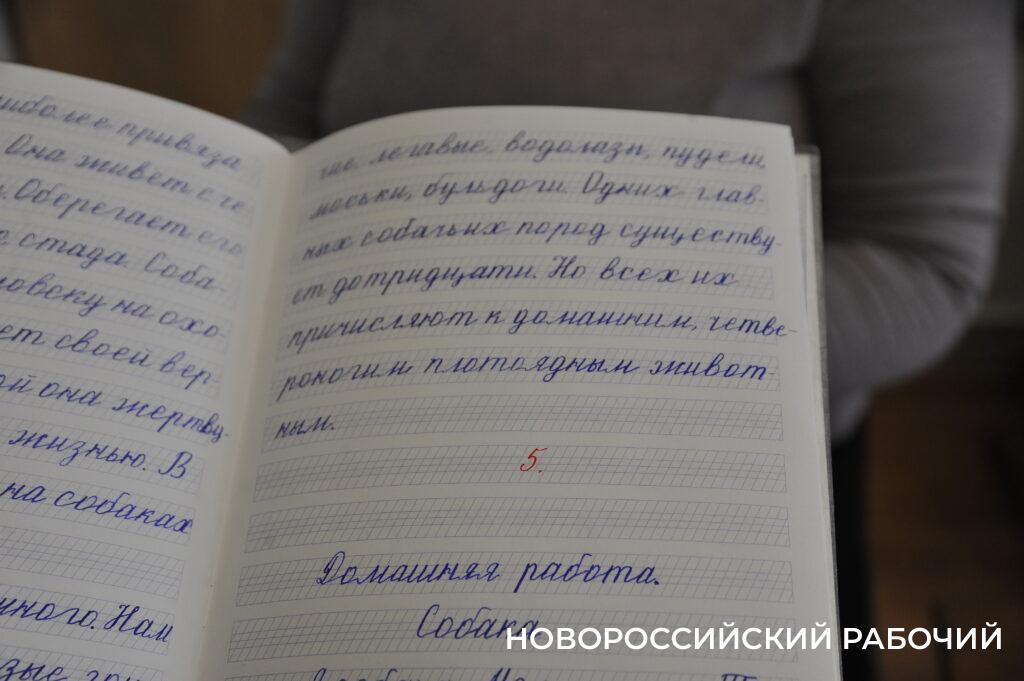 иболее привяза
Она живет с че
. Оберегает его
стада. Соба-
ловеку на охо-
ет своей вер-
ой она жертву-
жизнью. В
на собаках
ного. Нам
чие, легавые, водолазы, пудели,
моськи, бульдоги. Одних глав-
ных собачьих пород существу-
ет до тридцати. Но всех их
причисляют к домашним, четве-
роногим плотоядным живот-
ным.
5.
Домашняя работа.
Собака
НОВОРОССИЙСКИЙ РАБОЧИЙ